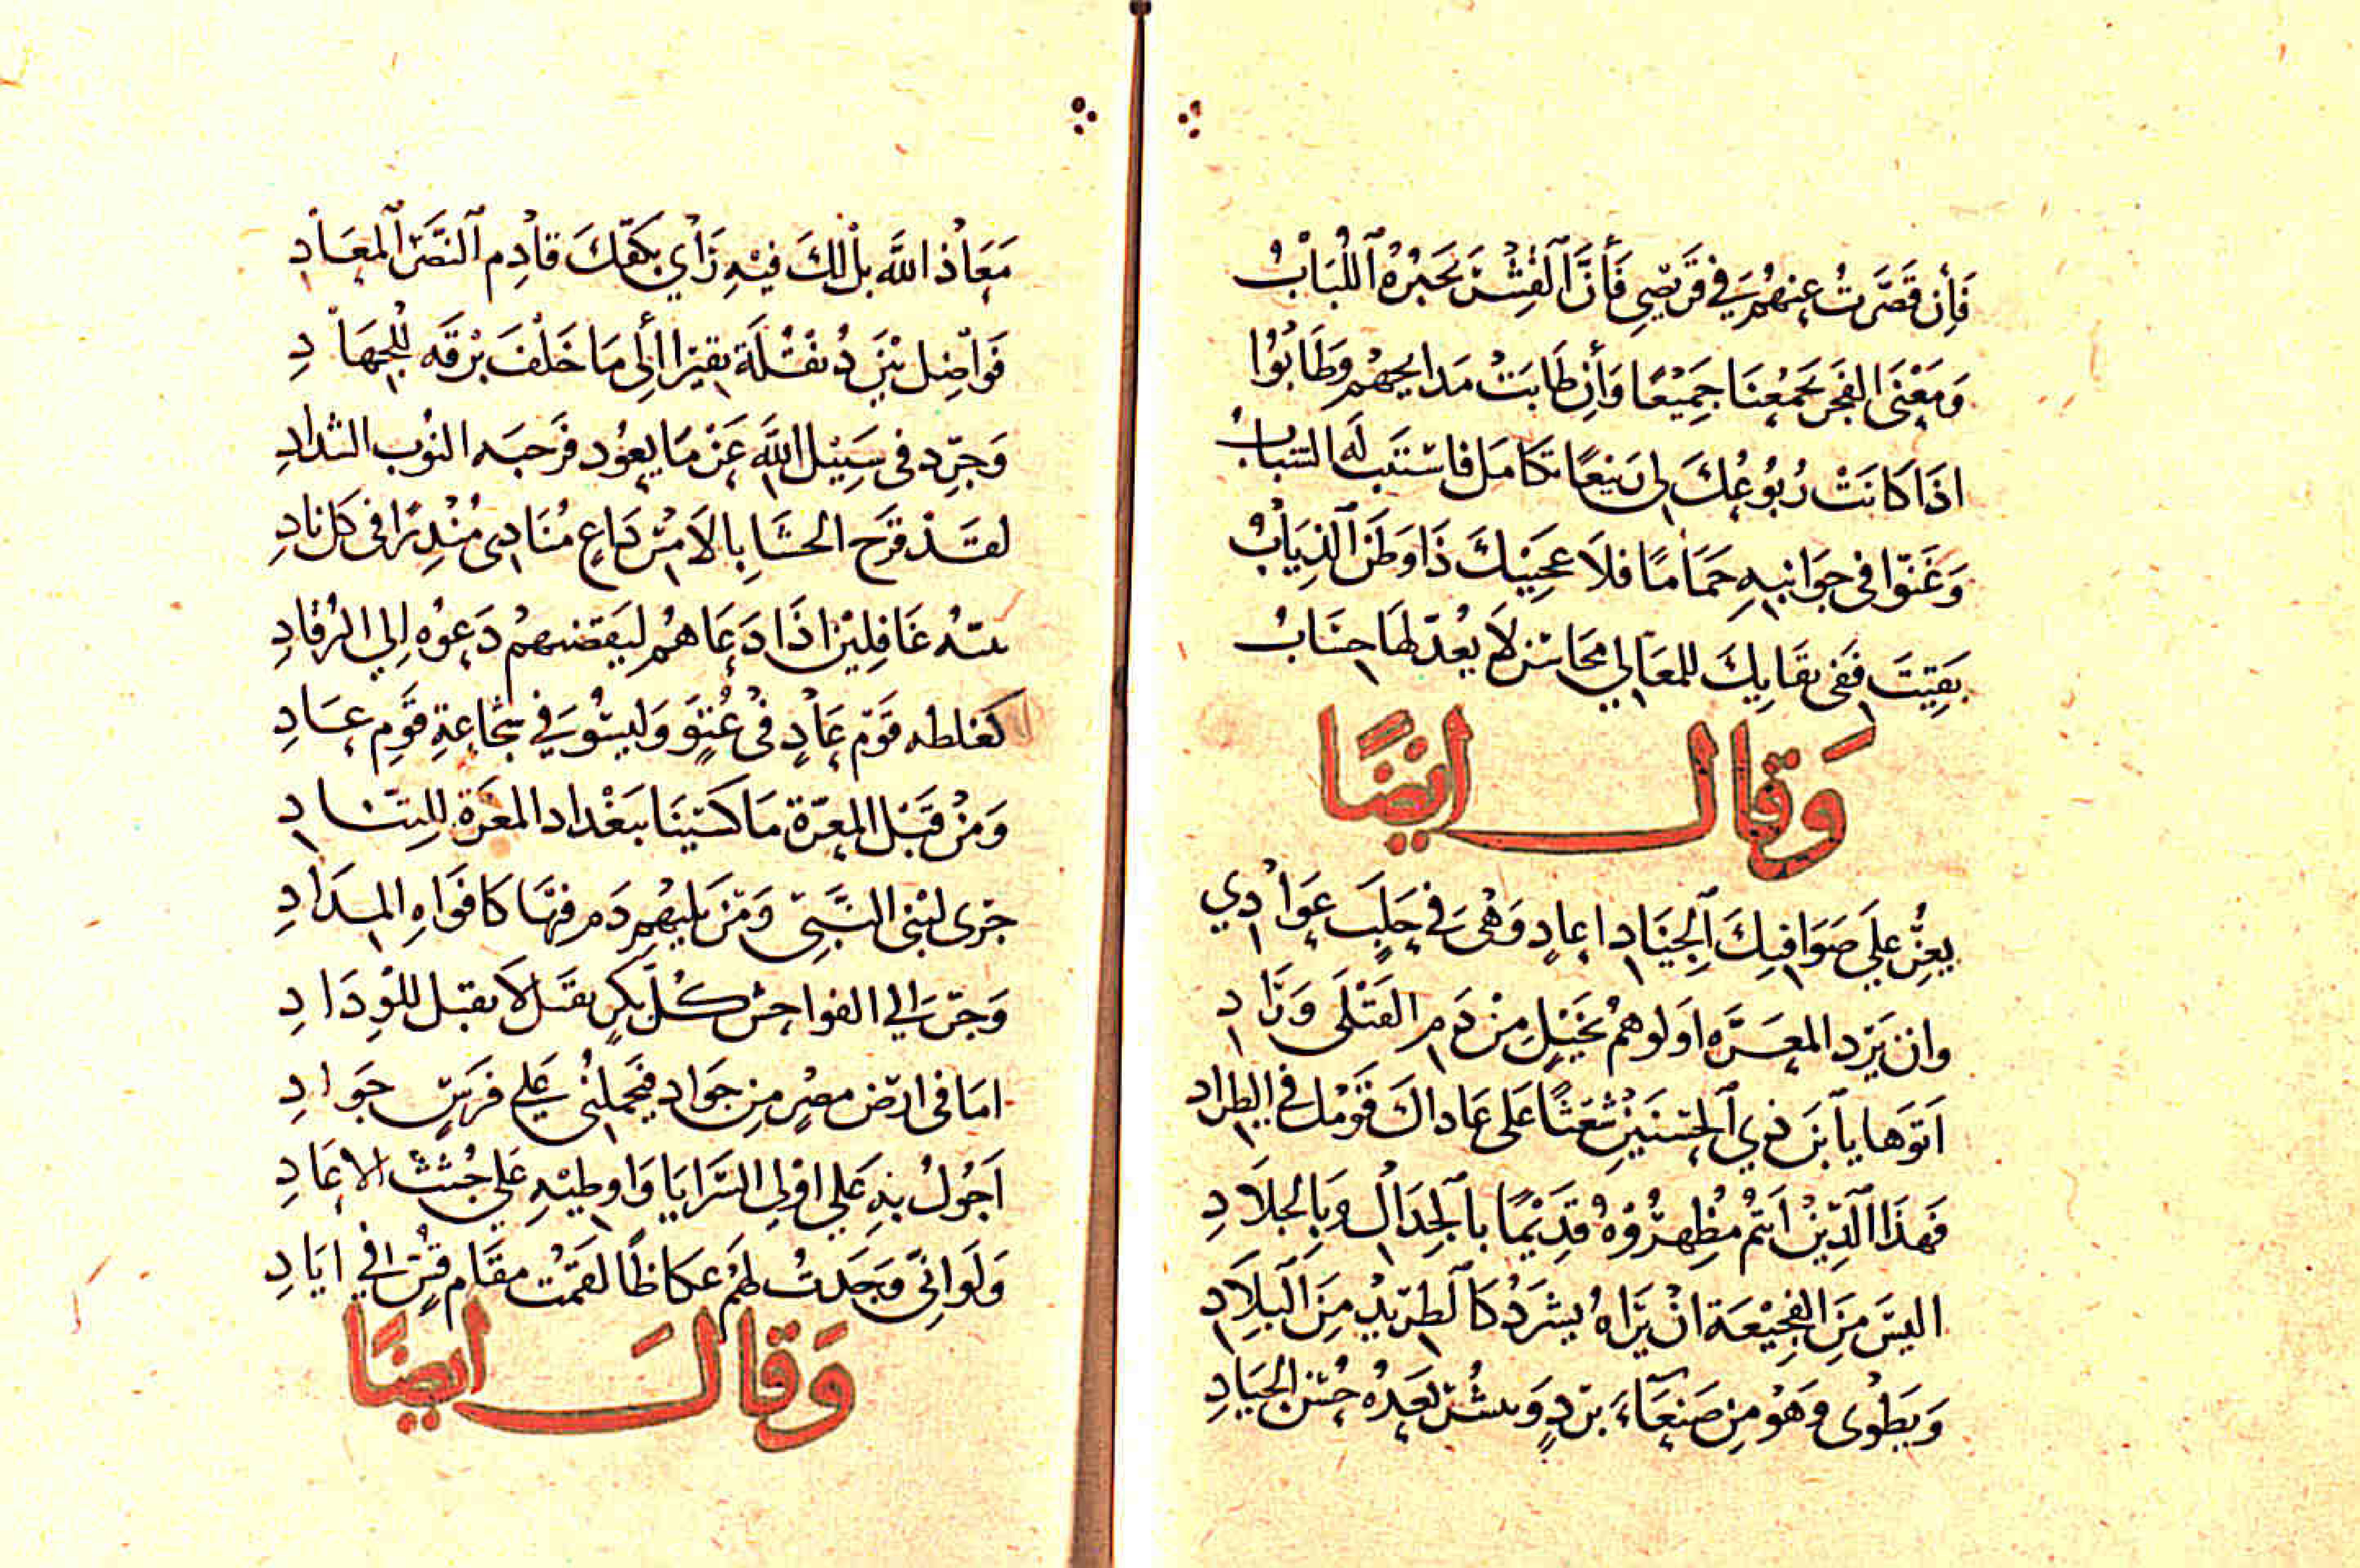 فَإِن قَصَّرتُ عِنهُم في قَريضِي فَأَنَّ القِشرَ يَحبُرُهُ اللُّبَابُ
وَمَعْنَى الفَجرِ يَجمَعُنَا جَمِيْعًا وَأَن طَابَتْ مَدايحهُم وَطَابُوُا
اذَا كَانَتْ رُبُوعُكَ لِى رَبيعًا تكَامَل فاستَتَب لَه الشبابُ
وَغَنّوا في جوَانبِهِ حَمَامًا فلاَ عَجِيبكَ ذَا وَطَن الذِيَابُ
بَقِيتَ فَفى بقَايكَ للمعَالي مَحَاسن لاَ يعُدّ لهَا حِسَابُ
وَقال ايضًا
يعِزُّ عَلَي صَوَافِنكَ الجيَادِ اعادٍ وَهْىَ في حَلَبٍ عَوَادِي
وان يَرد المعَرَّه اَولوهمُ بخَيلٍ مِنْ دَمِ القَتْلَى وِرَادِ
اَتوَهَا يا اَبنَ ذي الحسَنَينِ شعْثًا عَلى عَاداكَ قَوْمك في الطِرادِ
فَهذَا الدّينْ اَنتُم مُظهِرُوُهُ قَدِيْمًا بالجِدَال وَبِالجلاَدِ
اليسَ مِنَ الفَجِيْعَة انْ يَرَاهُ يشرَدُ كَالطرَيدِ مِنَ البِلاَدِ
وَيَطْوى وَهوُ مِن صَنعَآءَ بردٍ وَينشُر بَعدُهُ حُسن الجيَادِ
مَعَاذ اللَّه بالكَ فيْهِ رَاْي بكفّكَ قادِم النَصَر المعَادِ
فَواصِل بَيْنَ نَقْلَة إِلَى مَا خَلْفَ بَرْقَه للْجهَادِ
وَجرِّد في سَبِيْل اللَّه عَنْ مَا يعوُد فَرحبَه النوُب الشدادِ
لقَدْ قرَح الحَشَا بالاَمْس دَاعٍ مُنَادى مُنْذِرًا في كَل نادِ
غَافِليْن اذَا دَعَاهُم ليَقضهمُ دَعوُه الي الرُقادِ
كغلطه قَوْم عَادٍ فيْ عُتوٍ وَليسُو في شجَاعَةِ قَومِ عَادِ
وَمنْ قَبْل المعَرّة مَا كسِينَا ببَغْداد المعَرّة للِسَادِ
جَرى لبْنى النَّبِي وَمَن يليهِم دَم فيها كَافَوَاهِ المَدَادِ
وَجرّ الي الفواحِش كُلّ بكرٍ بقتَل لاَ بقبَل للوِدَادِ
امَا في ارض مصْرٍ مِن جَوَاد فيَحملنُى عَلي فرَسٍ جَوَادِ
اَجوُلُ بهِ عَلي اوْلِى السَرايَا وَاوطِيْهِ عَلي جُثث الاعَادِ
وَلَو انِّى وَجَدتُ لهُم عكاظًا لقمْتُ مقَام قسٍ في ايَادِ
وَقال ايضًا